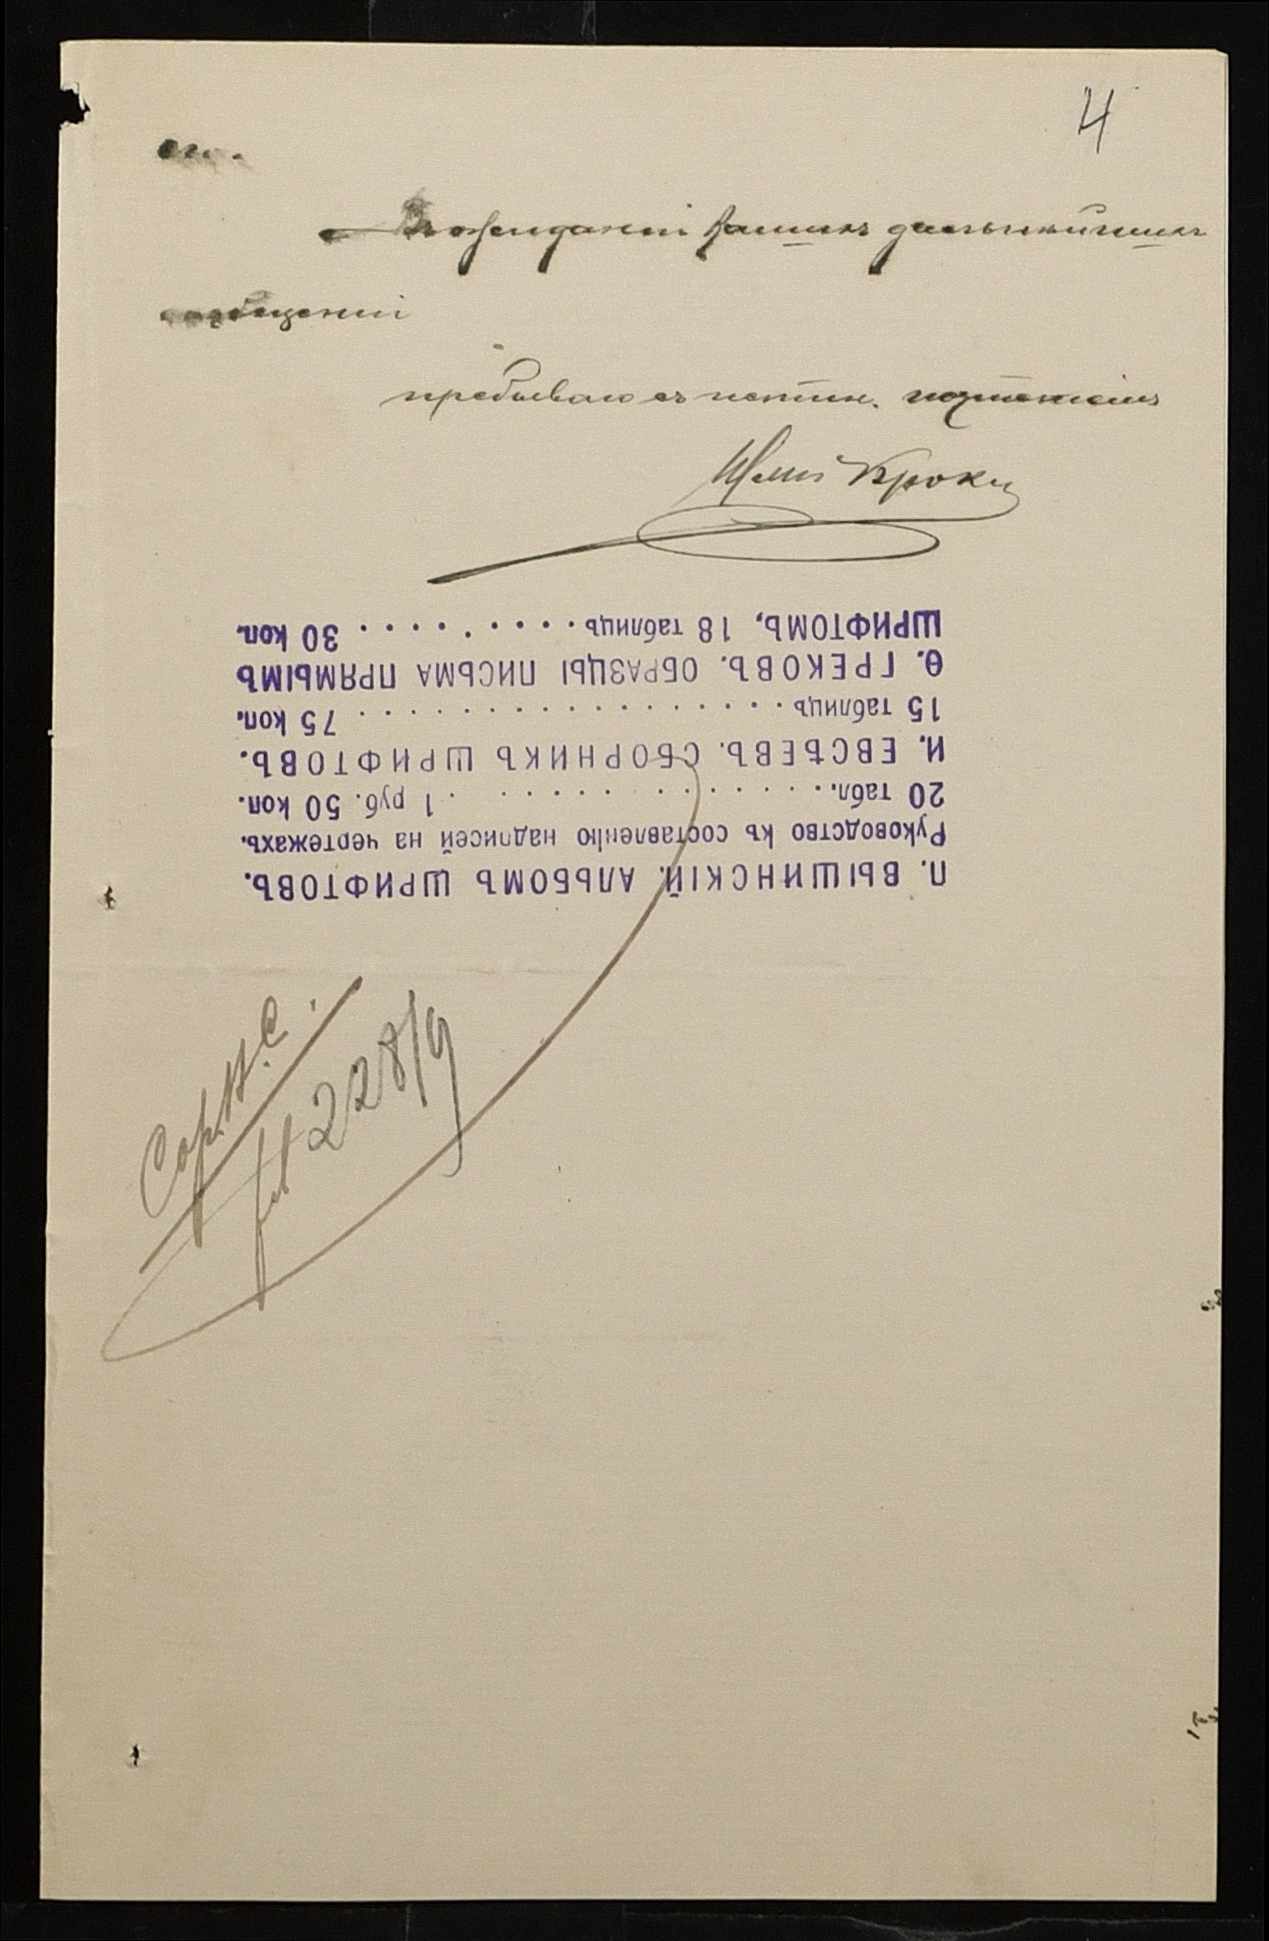 4
Въ ожиданіи Вашихъ дальнѣйшихъ
сообщеній
пребываю съ истин. почтеніемъ
П. ВЫШИНСКІЙ. АЛЬБОМЪ ШРИФТОВЪ.
Руководство къ составленію надписей на чертежахъ.
20 табл. . . . . . . . . . . . . . 1 руб. 50 коп.
И. ЕВСѢЕВЪ. СБОРНИКЪ ШРИФТОВЪ.
15 таблицъ . . . . . . . . . . . . . . . . . 75 коп.
Ѳ. ГРЕКОВЪ. ОБРАЗЦЫ ПИСЬМА ПРЯМЫМЪ
ШРИФТОМЪ, 18 таблицъ . . . . . . . . . 30 коп.
228/9